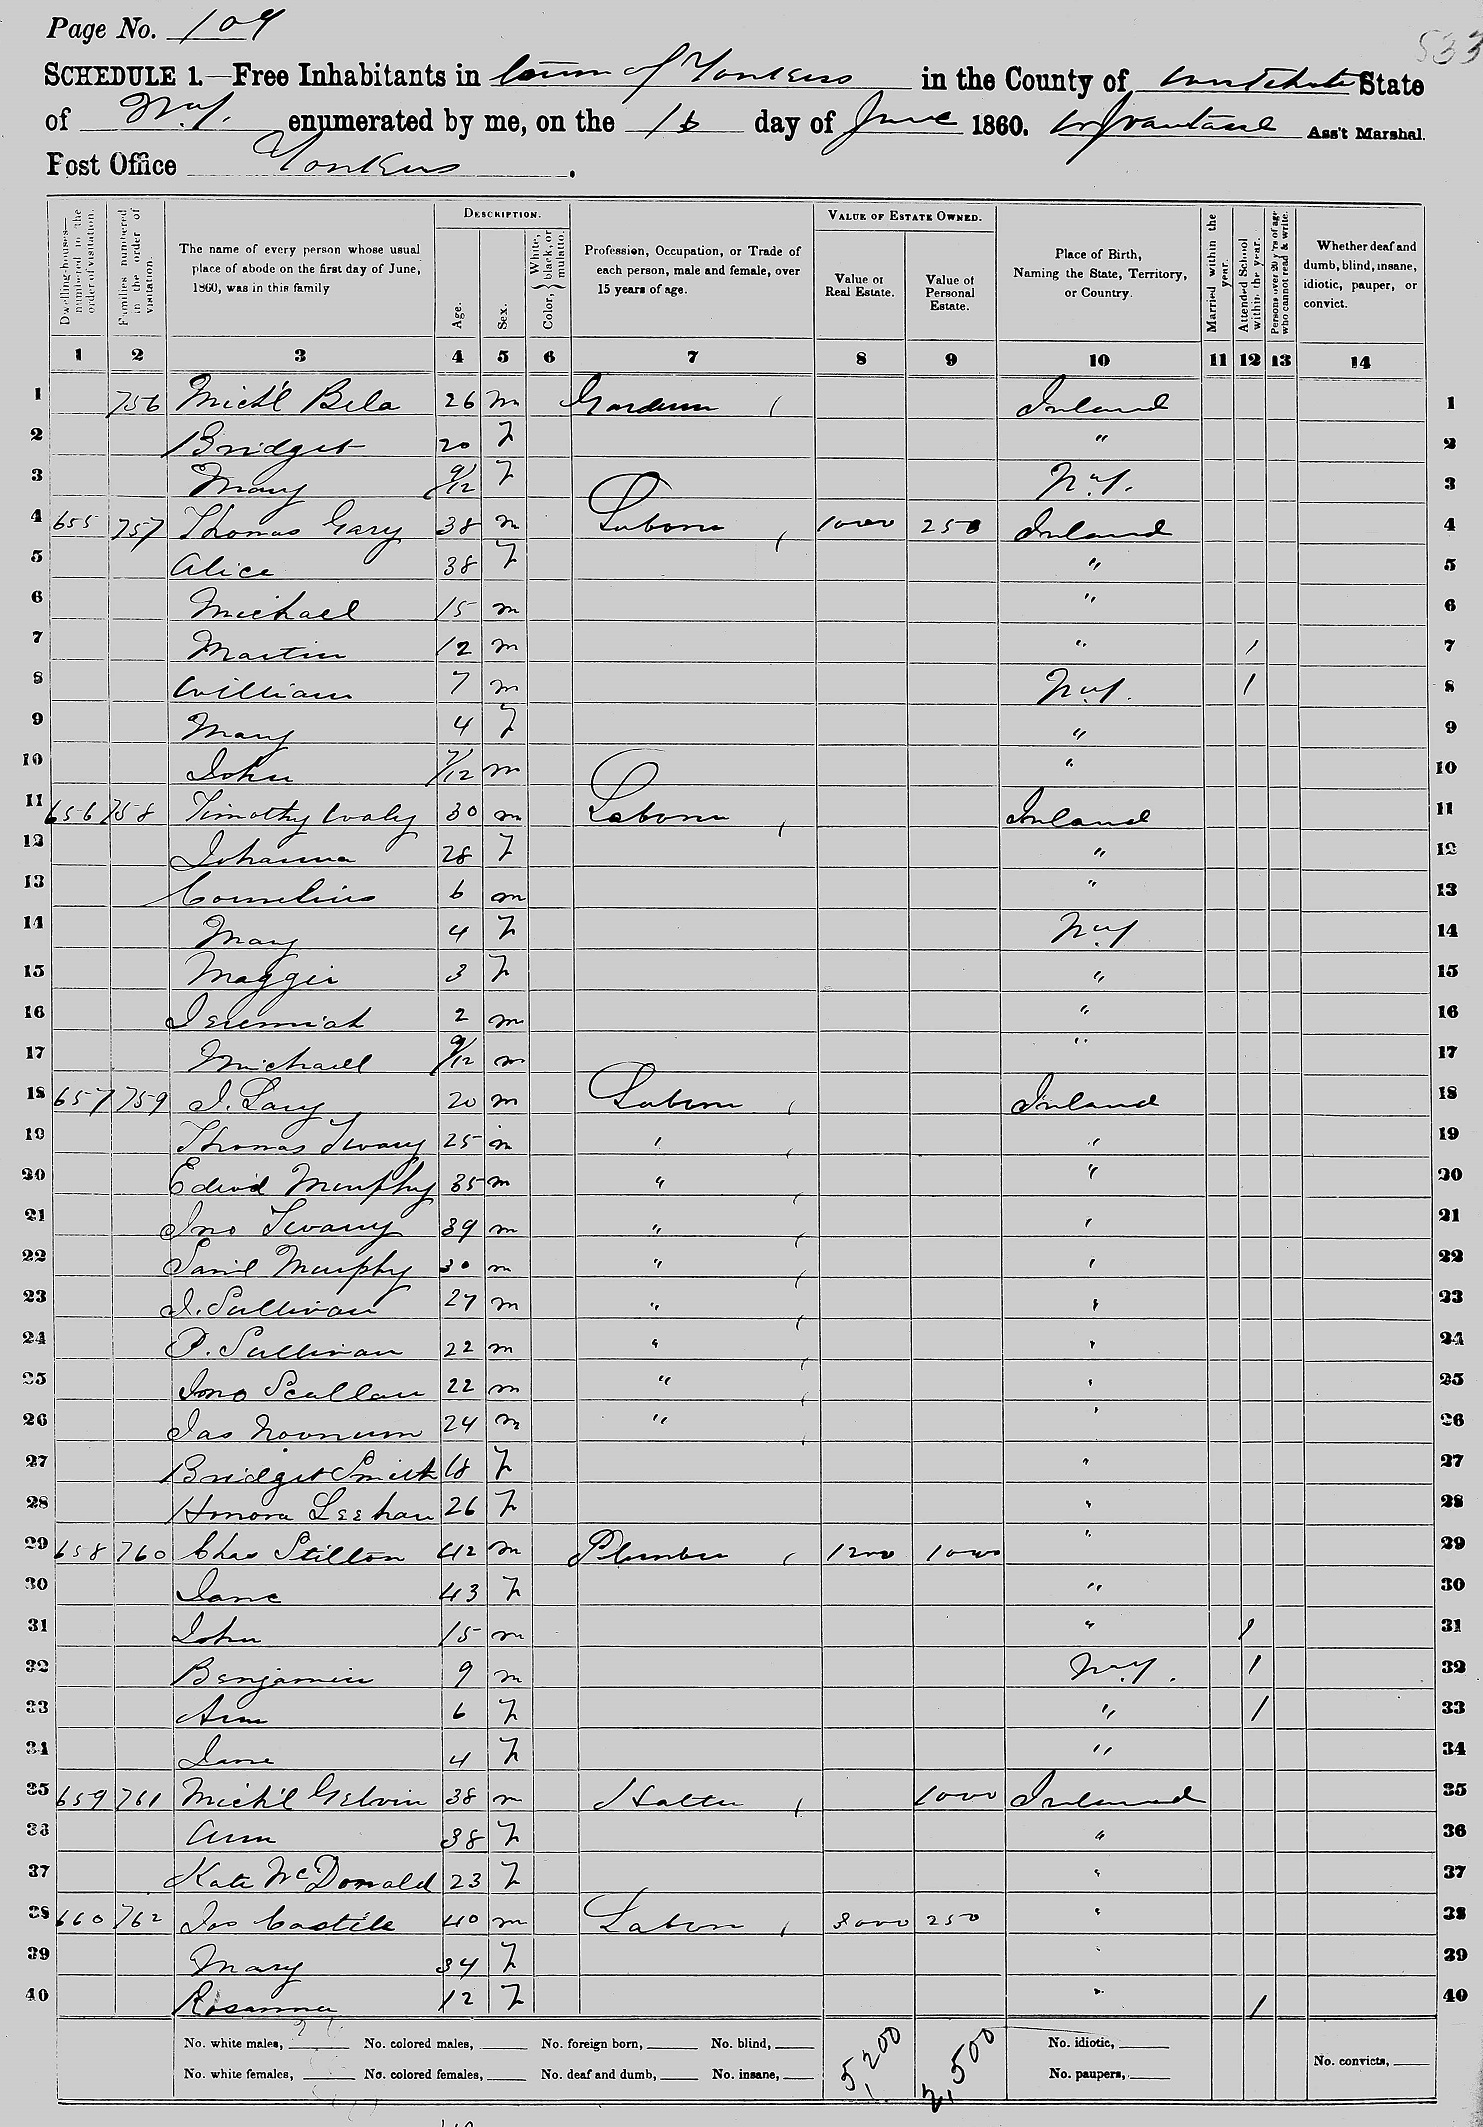 Page No. 109
533
SCHEDULE 1.—Free Inhabitants in Town of Yonkers in the County of Westchester State
of N.Y. enumerated by me, on the 16 day of June 1860. Ass't Marshal.
Post Office Yonkers.
Dwelling-houses—numbered in the order of visitation.
Families numbered in the order of visitation.
The name of every person whose usual place of abode on the first day of June, 1860, was in this family
DESCRIPTION.
Age.
Sex.
Color, { White, black, or mulatto.
Profession, Occupation, or Trade of each person, male and female, over 15 years of age.
VALUE OF ESTATE OWNED.
Value of Real Estate.
Value of Personal Estate.
Place of Birth, Naming the State, Territory, or Country.
Married within the year.
Attended School within the year.
Persons over 20 y'rs of age who cannot read & write.
Whether deaf and dumb, blind, insane, idiotic, pauper, or convict.
1 2 3 4 5 6 7 8 9 10 11 12 13 14
1 756 Mich'l Bela 26 m Gardener Ireland 1
2 Bridget 20 F " 2
3 Mary 9/12 F N.Y. 3
4 655 757 Thomas Gary 38 m Laborer 1000 250 Ireland 4
5 Alice 38 F " 5
6 Michael 15 m " 6
7 Martin 12 m " 1 7
8 William 7 m N.Y. 1 8
9 Mary 4 F " 9
10 John 7/12 m " 10
11 656 758 Timothy 30 m Laborer Ireland 11
12 Johanna 28 F " 12
13 Cornelius 6 m " 13
14 Mary 4 F N.Y 14
15 Maggie 3 F " 15
16 Jeremiah 2 m " 16
17 Michael 9/12 m " 17
18 657 759 J. 20 m Laborer Ireland 18
19 Thomas 25 m " " 19
20 Edwd Murphy 35 m " " 20
21 Jno 39 m " " 21
22 Danil Murphy 30 m " " 22
23 J. Sullivan 27 m " " 23
24 P. Sullivan 22 m " " 24
25 Jno Scallan 22 m " " 25
26 Jas 24 m " " 26
27 Bridget Smith 18 F " 27
28 Honora Leehan 26 F " 28
29 658 760 Chas Stilton 42 m Plumber 1200 1000 " 29
30 Jane 43 F " 30
31 John 15 m " 1 31
32 Benjamin 9 m N.Y. 1 32
33 Ann 6 F " 1 33
34 Jane 4 F " 34
35 659 761 Mich'l Gelvin 38 m Hatter 1000 Ireland 35
36 Ann 38 F " 36
37 Kate McDonald 23 F " 37
38 660 762 Jas Castile 40 m Labor 3000 250 " 38
39 Mary 34 F " 39
40 Rosanna 12 F " 1 40
No. white males, No. colored males, No. foreign born, No. blind, 5,200 2,500 No. idiotic,
No. white females, No. colored females, No. deaf and dumb, No. insane, No. paupers, No. convicts,